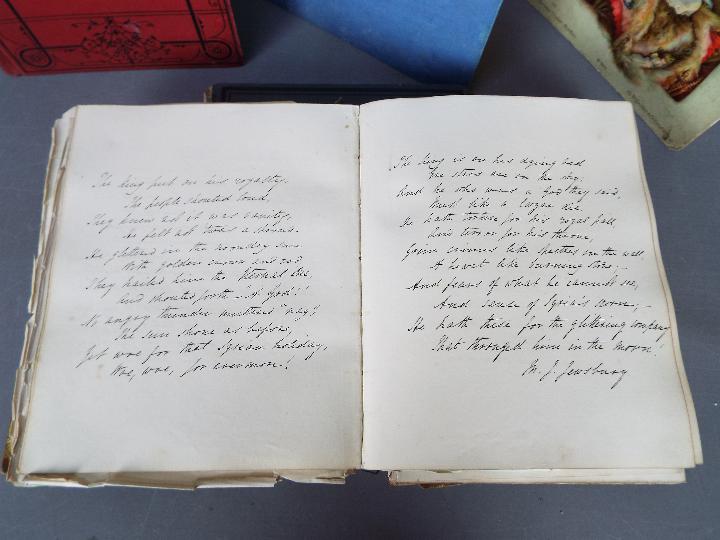 The king put on his royalty,
The people shouted loud,
They knew not it was vanity,
He felt not 'twas a shroud.
He glittered in the noonday sun
With golden crown and rod
They hailed him the Eternal One,
And shouted forth "A God"!
No angry thunder muttered nigh,
The sun shone as before,
Yet woe for that Syrian holiday,
Woe, woe, for evermore!
The king is on his dying bed
The stars are in the sky,
And he who was a God they said,
Must like a Lazar die.
He hath torture for his royal pall
And terror for his throne,
Grim crowns like spectres on the wall
A heart like burning stone;—
And fears of what he cannot see,
And sense of Syria's scorn;—
He hath these for the glittering company
That thronged him in the morn!
M. J. Jewsbury